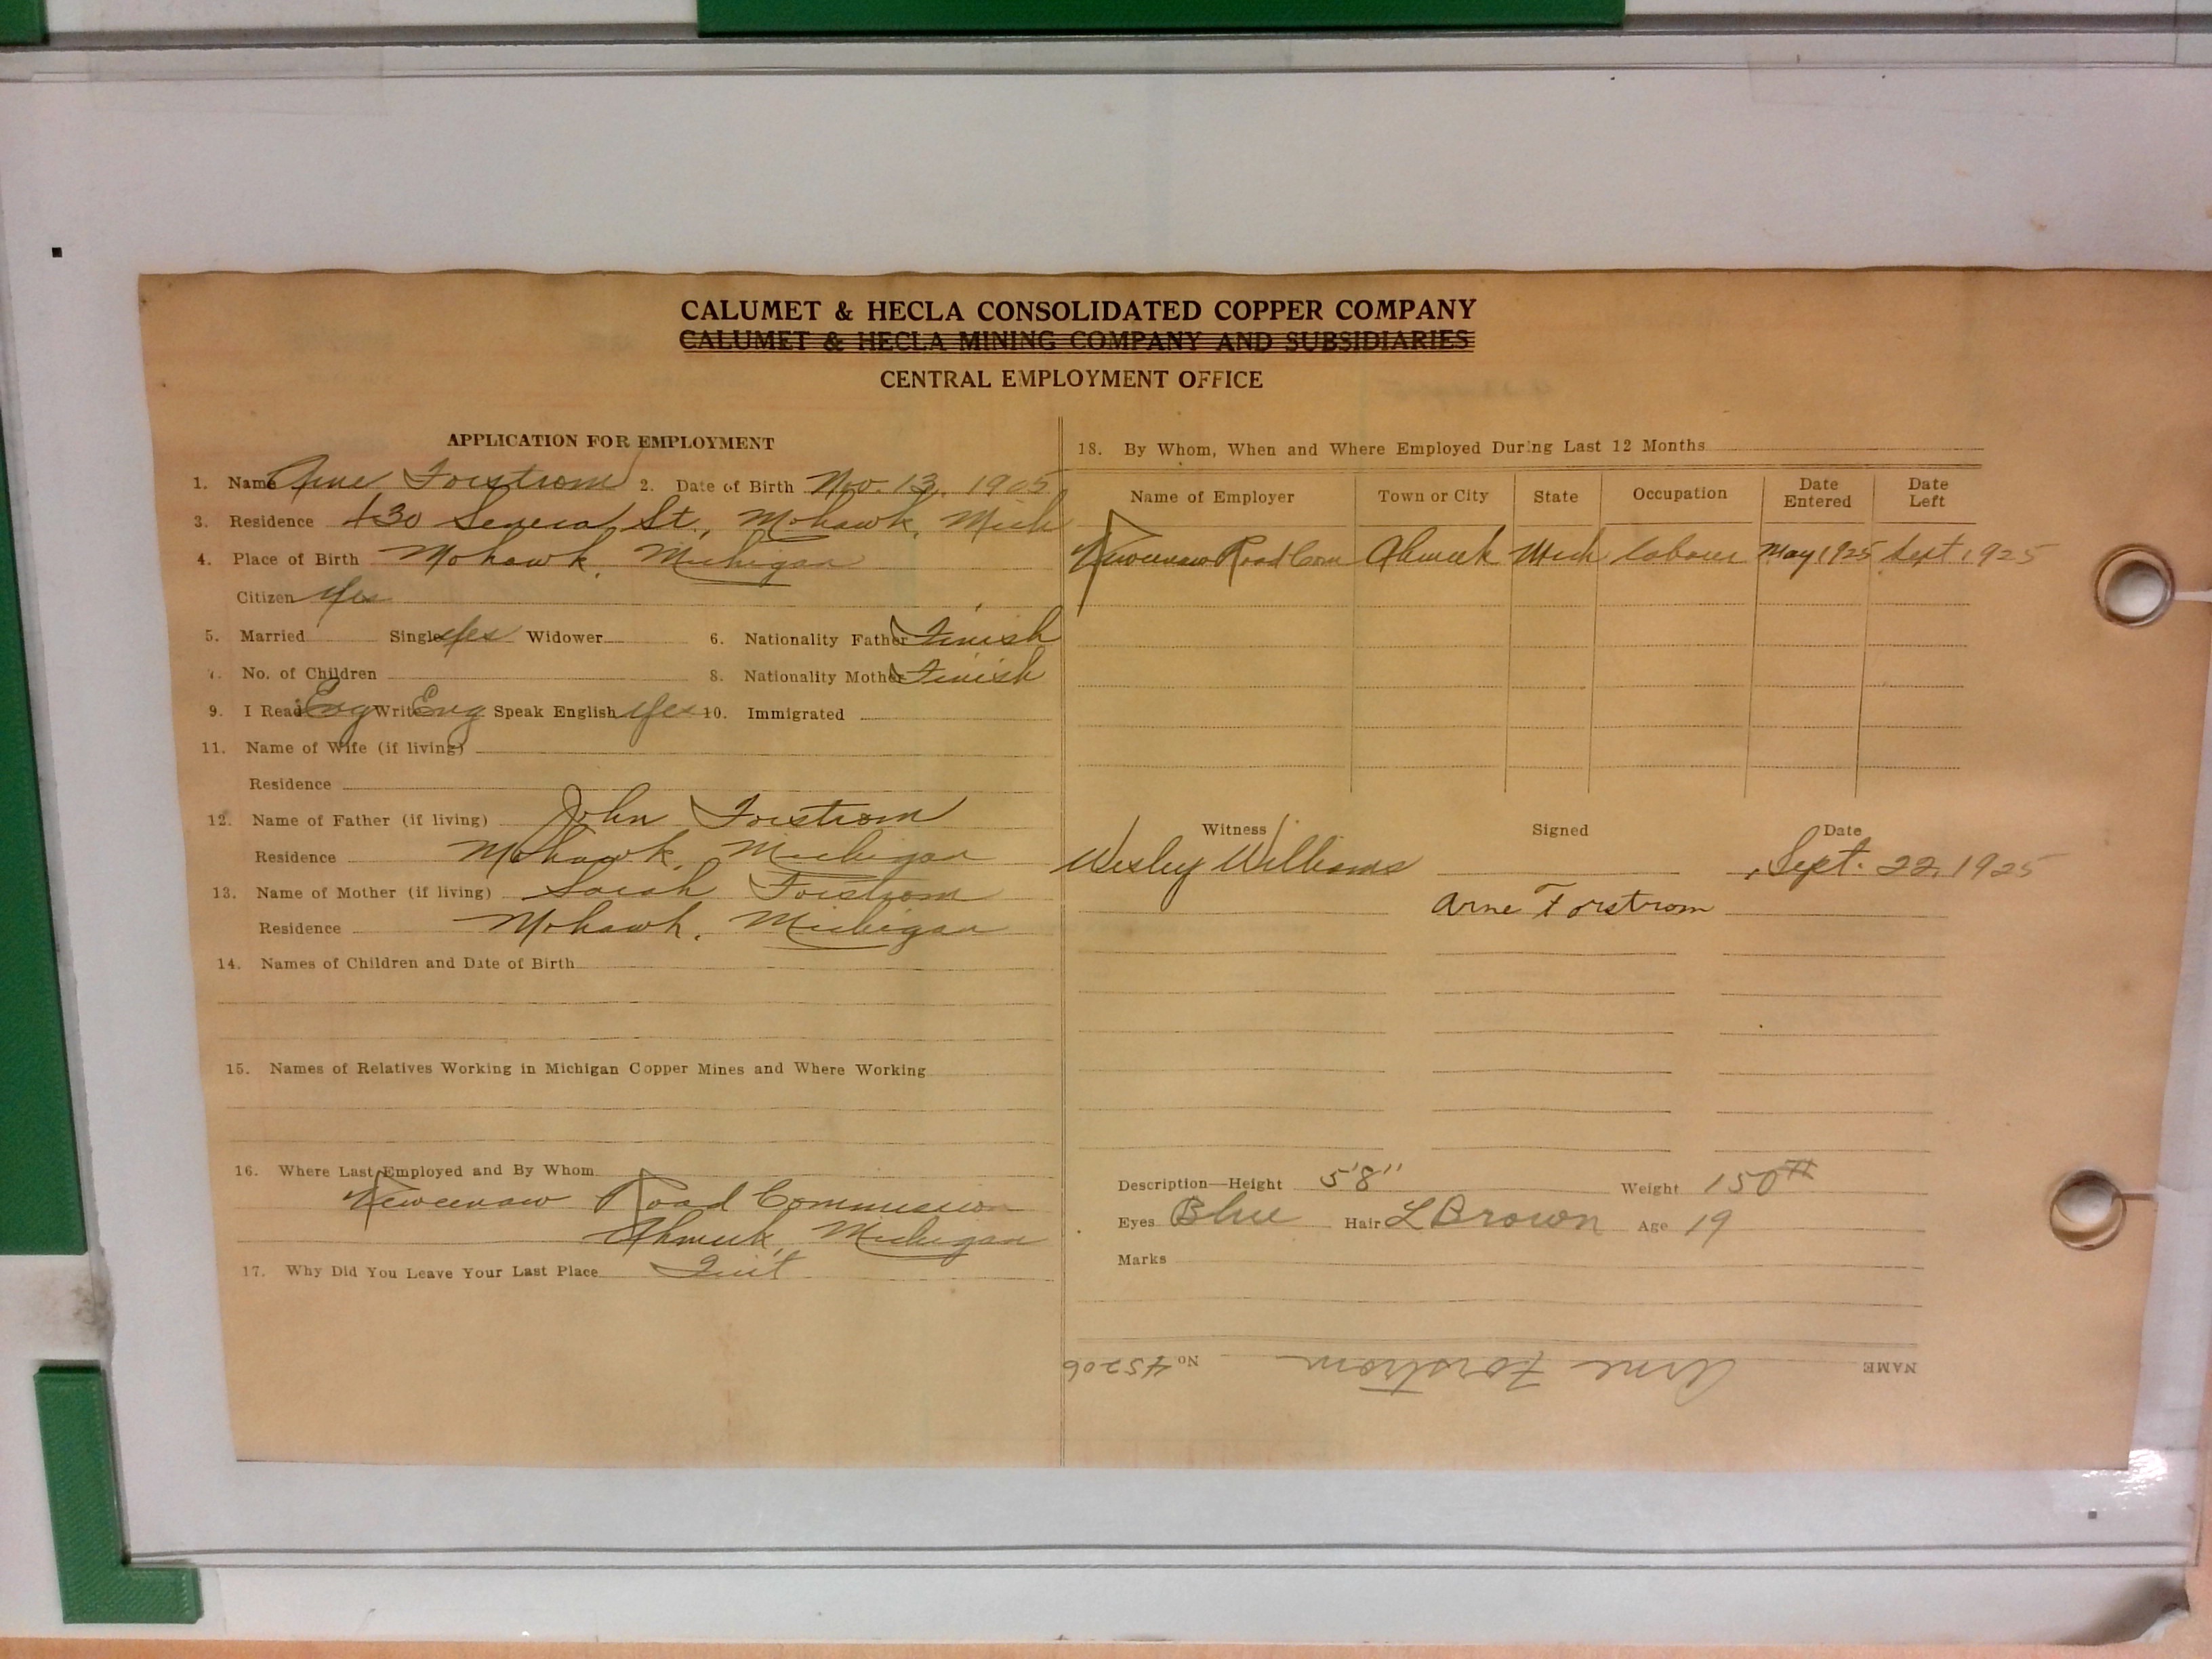 CALUMET & HECLA CONSOLIDATED COPPER COMPANY
CALUMET & HECLA MINING COMPANY AND SUBSIDIARIES
CENTRAL EMPLOYMENT OFFICE
APPLICATION FOR EMPLOYMENT
1. Name Arne Forstrom 2. Date of Birth Nov. 13, 1905
3. Residence 430 Seneca St., Mohawk, Mich
4. Place of Birth Mohawk, Michigan
Citizen Yes
5. Married Single Yes Widower 6. Nationality Father Finish
7. No. of Children 8. Nationality Mother Finish
9. I Read Eng Write Eng Speak English Yes 10. Immigrated
11. Name of Wife (if living)
Residence
12. Name of Father (if living) John Forstrom
Residence Mohawk, Michigan
13. Name of Mother (if living) Sarah Forstrom
Residence Mohawk, Michigan
14. Names of Children and Date of Birth
15. Names of Relatives Working in Michigan Copper Mines and Where Working
16. Where Last Employed and By Whom
Keweenaw Road Commission
Ahmeek, Michigan
17. Why Did You Leave Your Last Place Quit
18. By Whom, When and Where Employed During Last 12 Months
Name of Employer Town or City State Occupation Date Entered Date Left
Keweenaw Road Com Ahmeek Mich labourer May 1925 Sept 1925
Witness Signed Date
Wesley Williams Sept. 22, 1925
Arne Forstrom
Description—Height 5'8" Weight 150#
Eyes Blue Hair L Brown Age 19
Marks
NAME Arne Forstrom No 45206